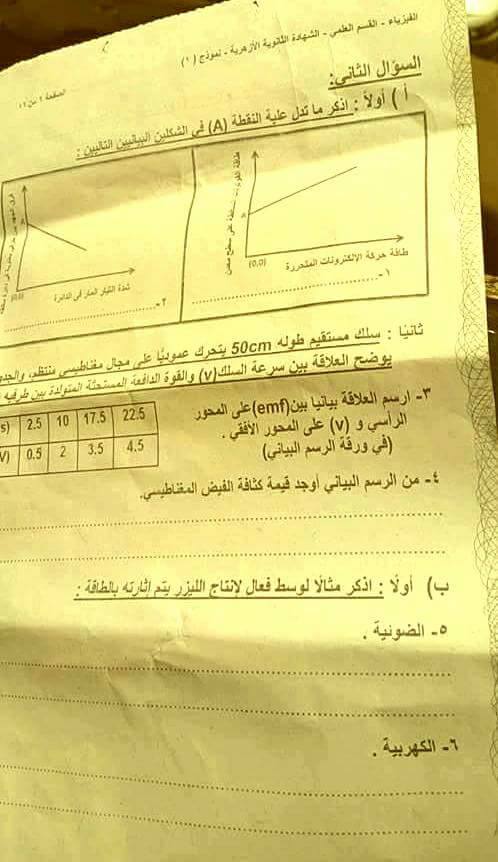 الفيزياء - القسم العلمي - الشهادة الثانوية الأزهرية - نموذج ( ١ )
السؤال الثاني:
أ ) أولاً : اذكر ما تدل عليه النقطة (A) في الشكلين البيانيين التاليين :
(0,0)
طاقة حركة الإلكترونات المتحررة
(0,0)
شدة التيار المار في الدائرة
١-
٢-
ثانيًا : سلك مستقيم طوله 50cm يتحرك عموديًا على مجال مغناطيسي منتظم،
يوضح العلاقة بين سرعة السلك(v) والقوة الدافعة المستحثة المتولدة بين طرفيه
s) 2.5 10 17.5 22.5
V) 0.5 2 3.5 4.5
٣- ارسم العلاقة بيانيا بين(emf)على المحور
الرأسي و (v) على المحور الأفقي .
(في ورقة الرسم البياني)
٤- من الرسم البياني أوجد قيمة كثافة الفيض المغناطيسي.
ب) أولاً : اذكر مثالاً لوسط فعال لإنتاج الليزر يتم إثارته بالطاقة :
٥- الضوئية .
٦- الكهربية .